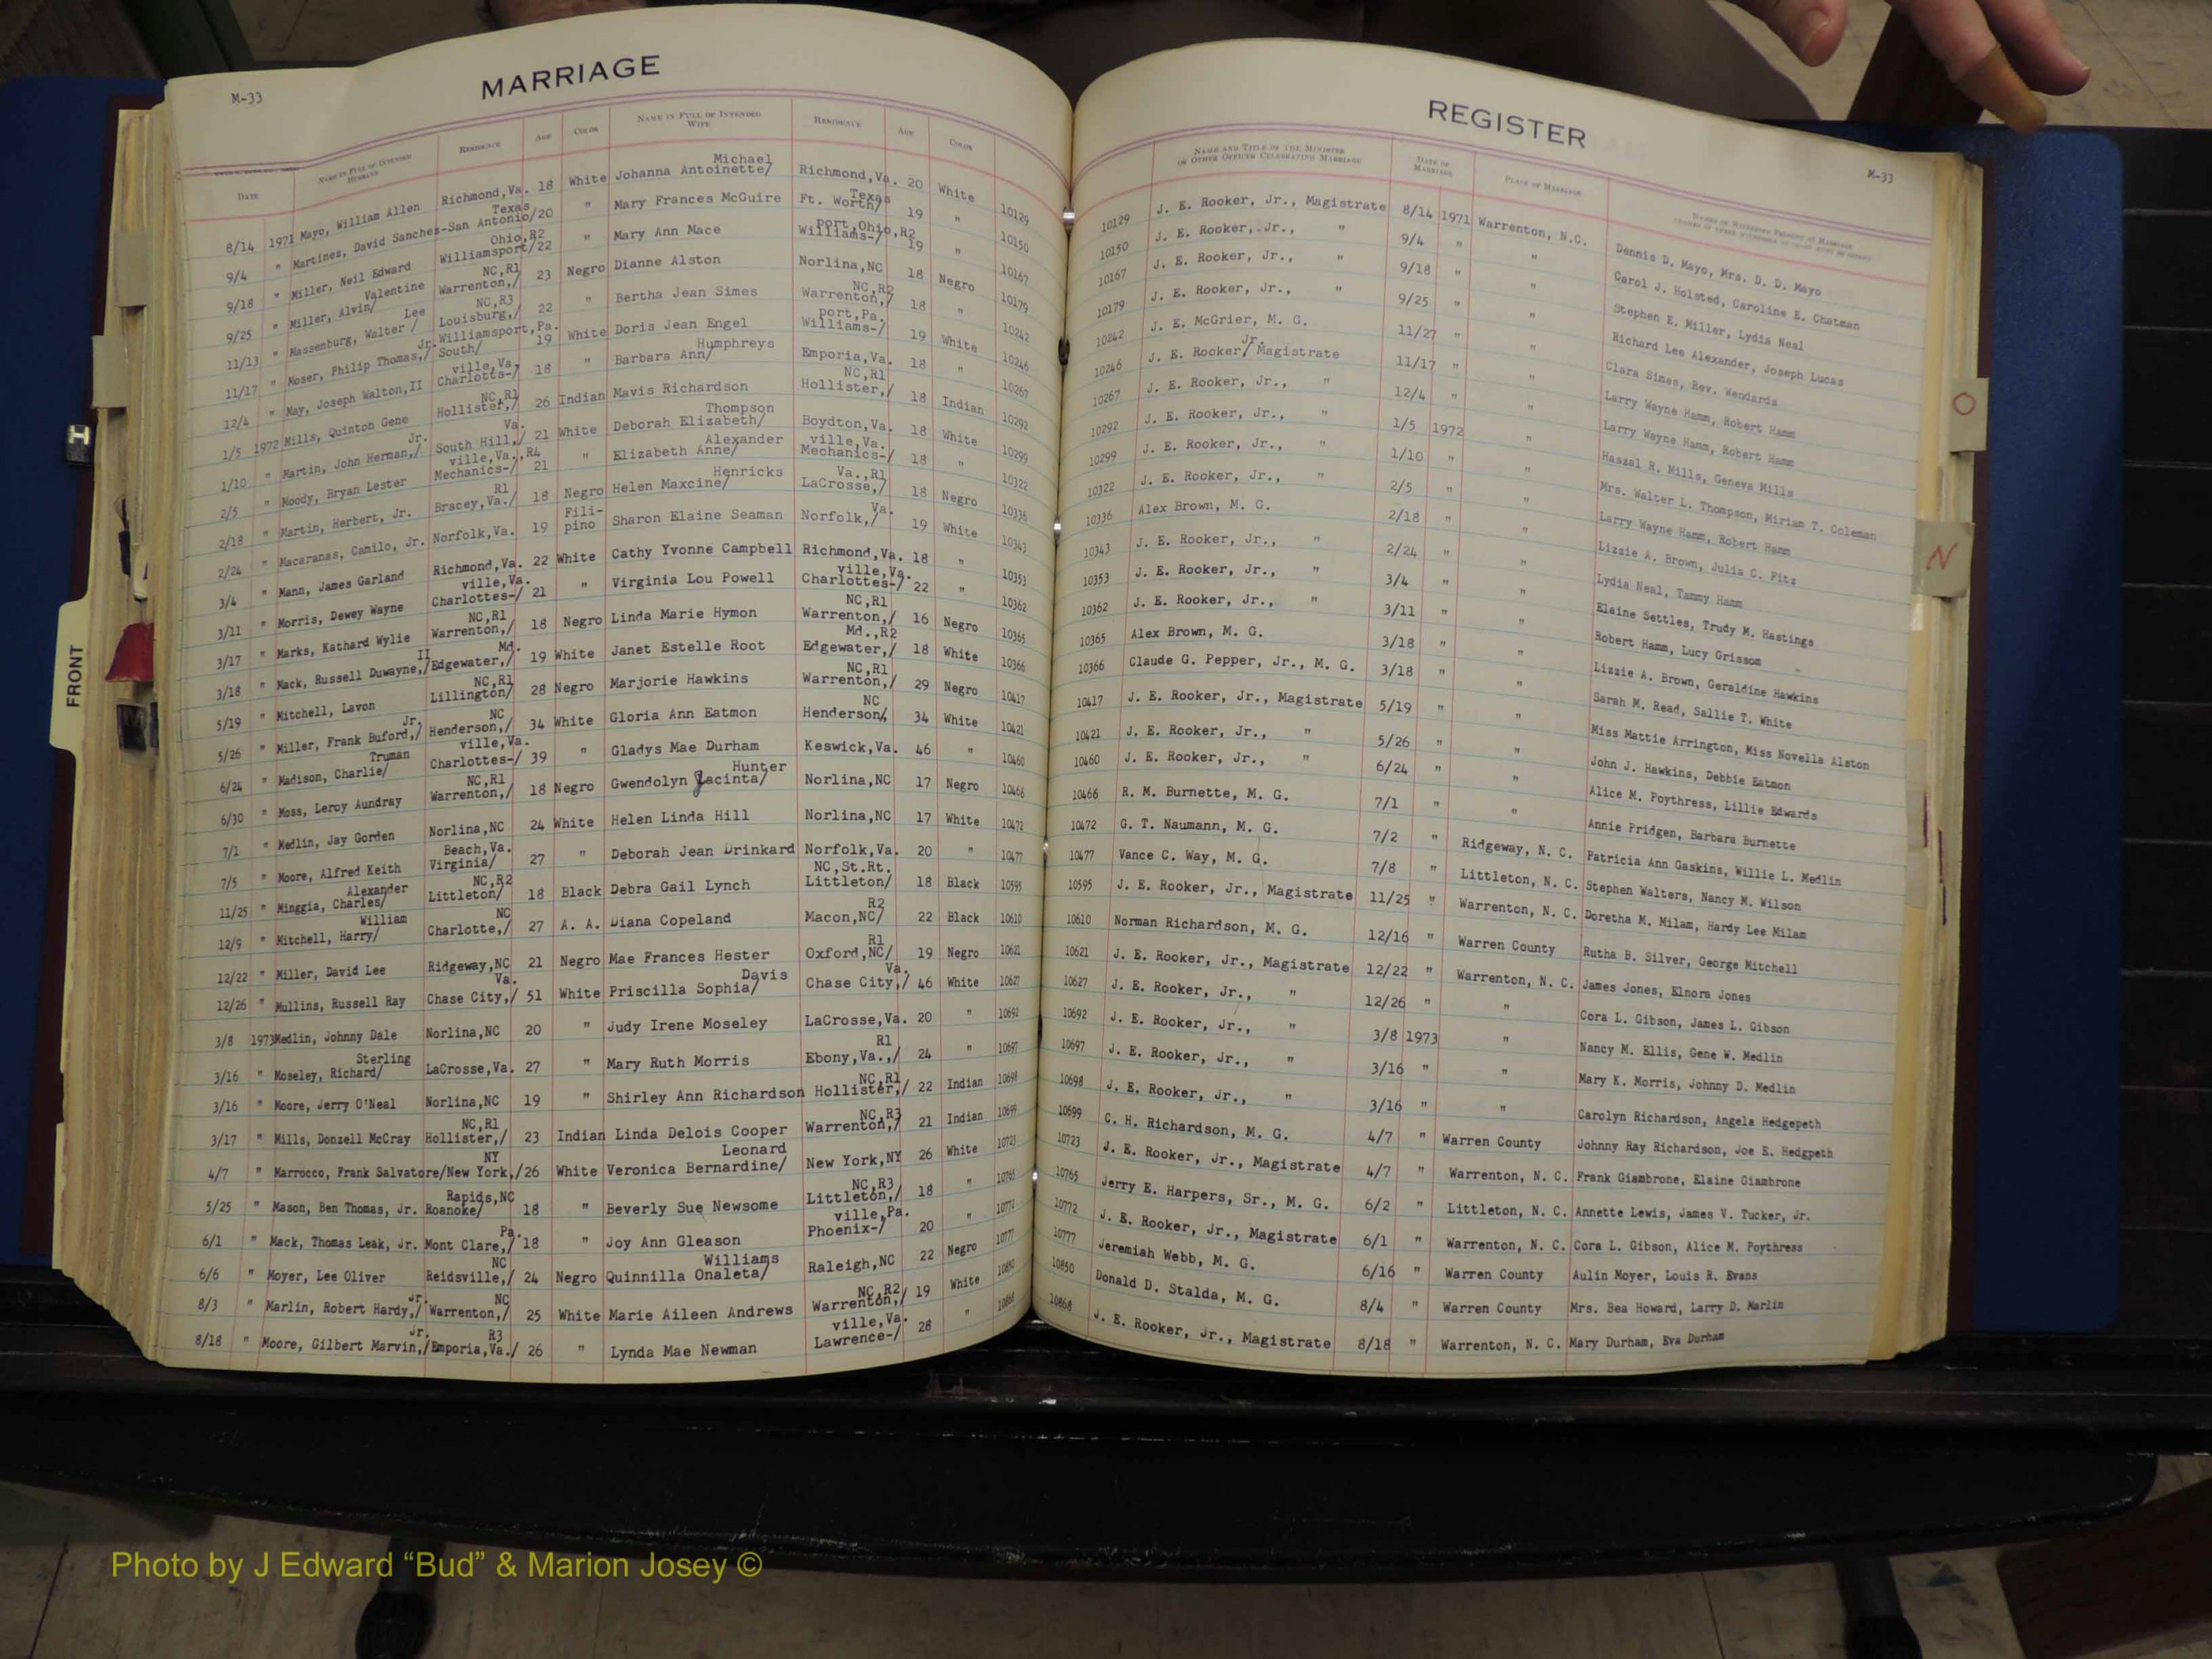 MARRIAGE
M-33
DATE NAME IN FULL OF INTENDED HUSBAND RESIDENCE AGE COLOR NAME IN FULL OF INTENDED WIFE RESIDENCE AGE COLOR
8/14 1971 Mayo, William Allen Richmond,Va. 18 White Johanna Antoinette/ Michael Richmond,Va. 20 White 10129
9/4 " Martines, David Sanches-San Antonio/ Texas 20 " Mary Frances McGuire Ft. Worth/ Texas 19 " 10150
9/18 " Miller, Neil Edward Williamsport/ Ohio,R2 22 " Mary Ann Mace Williams-/ port,Ohio,R2 19 " 10167
9/25 " Miller, Alvin/ Valentine Warrenton,/ NC,R1 23 Negro Dianne Alston Norlina,NC 18 Negro 10179
11/13 " Massenburg, Walter / Lee Louisburg,/ NC,R3 22 " Bertha Jean Simes Warrenton,/ NC,R2 18 " 10242
11/17 " Moser, Philip Thomas,/ Jr. South/ Williamsport,Pa. 19 White Doris Jean Engel Williams-/ port,Pa. 19 White 10246
12/4 " May, Joseph Walton,II Charlotts-/ ville,Va. 18 " Barbara Ann/ Humphreys Emporia,Va. 18 " 10267
1/5 1972 Mills, Quinton Gene Hollister,/ NC,R1 26 Indian Mavis Richardson Hollister,/ NC,R1 18 Indian 10292
1/10 " Martin, John Herman,/ Jr. South Hill,/ Va. 21 White Deborah Elizabeth/ Thompson Boydton,Va. 18 White 10299
2/5 " Moody, Bryan Lester Mechanics-/ ville,Va.,R4 21 " Elizabeth Anne/ Alexander Mechanics-/ ville,Va. 18 " 10322
2/18 " Martin, Herbert, Jr. Bracey,Va./ R1 18 Negro Helen Maxcine/ Henricks LaCrosse,/ Va.,R1 18 Negro 10336
2/24 " Macaranas, Camilo, Jr. Norfolk,Va. 19 Fili-pino Sharon Elaine Seaman Norfolk,/ Va. 19 White 10343
3/4 " Mann, James Garland Richmond,Va. 22 White Cathy Yvonne Campbell Richmond,Va. 18 " 10353
3/11 " Morris, Dewey Wayne Charlottes-/ ville,Va. 21 " Virginia Lou Powell Charlottes-/ ville,Va. 22 " 10362
3/17 " Marks, Kathard Wylie Warrenton,/ NC,R1 18 Negro Linda Marie Hymon Warrenton,/ NC,R1 16 Negro 10365
3/18 " Mack, Russell Duwayne,/ II Edgewater,/ Md. 19 White Janet Estelle Root Edgewater,/ Md.,R2 18 White 10366
5/19 " Mitchell, Lavon Lillington/ NC,R1 28 Negro Marjorie Hawkins Warrenton,/ NC,R1 29 Negro 10417
5/26 " Miller, Frank Buford,/ Jr. Henderson,/ NC 34 White Gloria Ann Eatmon Henderson/ NC 34 White 10421
6/24 " Madison, Charlie/ Truman Charlottes-/ ville,Va. 39 " Gladys Mae Durham Keswick,Va. 46 " 10460
6/30 " Moss, Leroy Aundray Warrenton,/ NC,R1 18 Negro Gwendolyn Jacinta/ Hunter Norlina,NC 17 Negro 10466
7/1 " Medlin, Jay Gorden Norlina,NC 24 White Helen Linda Hill Norlina,NC 17 White 10472
7/5 " Moore, Alfred Keith Virginia/ Beach,Va. 27 " Deborah Jean Drinkard Norfolk,Va. 20 " 10477
11/25 " Minggia, Charles/ Alexander Littleton/ NC,R2 18 Black Debra Gail Lynch Littleton/ NC,St.Rt. 18 Black 10595
12/9 " Mitchell, Harry/ William Charlotte,/ NC 27 A. A. Diana Copeland Macon,NC/ R2 22 Black 10610
12/22 " Miller, David Lee Ridgeway,NC 21 Negro Mae Frances Hester Oxford,NC/ R1 19 Negro 10621
12/26 " Mullins, Russell Ray Chase City,/ Va. 51 White Priscilla Sophia/ Davis Chase City,/ Va. 46 White 10627
3/8 1973 Medlin, Johnny Dale Norlina,NC 20 " Judy Irene Moseley LaCrosse,Va. 20 " 10692
3/16 " Moseley, Richard/ Sterling LaCrosse,Va. 27 " Mary Ruth Morris Ebony,Va.,/ R1 24 " 10697
3/16 " Moore, Jerry O'Neal Norlina,NC 19 " Shirley Ann Richardson Hollister,/ NC,R1 22 Indian 10698
3/17 " Mills, Donzell McCray Hollister,/ NC,R1 23 Indian Linda Delois Cooper Warrenton,/ NC,R3 21 Indian 10699
4/7 " Marrocco, Frank Salvatore/New York,/ NY 26 White Veronica Bernardine/ Leonard New York,NY 26 White 10723
5/25 " Mason, Ben Thomas, Jr. Roanoke/ Rapids,NC 18 " Beverly Sue Newsome Littleton,/ NC,R3 18 " 10765
6/1 " Mack, Thomas Leak, Jr. Mont Clare,/ Pa. 18 " Joy Ann Gleason Phoenix-/ ville,Pa. 20 " 10772
6/6 " Moyer, Lee Oliver Reidsville,/ NC 24 Negro Quinnilla Onaleta/ Williams Raleigh,NC 22 Negro 10777
8/3 " Marlin, Robert Hardy,/ Jr. Warrenton,/ NC 25 White Marie Aileen Andrews Warrenton,/ NC,R2 19 White 10850
8/18 " Moore, Gilbert Marvin,/ Jr. Emporia,Va./ R3 26 " Lynda Mae Newman Lawrence-/ ville,Va. 28 " 10868
REGISTER
M-33
NAME AND TITLE OF THE MINISTER OR OTHER OFFICER CELEBRATING MARRIAGE DATE OF MARRIAGE PLACE OF MARRIAGE NAMES OF WITNESSES PRESENT AT MARRIAGE
10129 J. E. Rooker, Jr., Magistrate 8/14 1971 Warrenton, N.C. Dennis D. Mayo, Mrs. D. D. Mayo
10150 J. E. Rooker, Jr., " 9/4 " " Carol J. Holsted, Caroline E. Chatman
10167 J. E. Rooker, Jr., " 9/18 " " Stephen E. Miller, Lydia Neal
10179 J. E. Rooker, Jr., " 9/25 " " Richard Lee Alexander, Joseph Lucas
10242 J. E. McGrier, M. G. 11/27 " " Clara Simes, Rev. Wendards
10246 J. E. Rooker/ Jr. Magistrate 11/17 " " Larry Wayne Hamm, Robert Hamm
10267 J. E. Rooker, Jr., " 12/4 " " Larry Wayne Hamm, Robert Hamm
10292 J. E. Rooker, Jr., " 1/5 1972 " Haszal R. Mills, Geneva Mills
10299 J. E. Rooker, Jr., " 1/10 " " Mrs. Walter L. Thompson, Miriam T. Coleman
10322 J. E. Rooker, Jr., " 2/5 " " Larry Wayne Hamm, Robert Hamm
10336 Alex Brown, M. G. 2/18 " " Lizzie A. Brown, Julia C. Fitz
10343 J. E. Rooker, Jr., " 2/24 " " Lydia Neal, Tammy Hamm
10353 J. E. Rooker, Jr., " 3/4 " " Elaine Settles, Trudy M. Hastings
10362 J. E. Rooker, Jr., " 3/11 " " Robert Hamm, Lucy Grissom
10365 Alex Brown, M. G. 3/18 " " Lizzie A. Brown, Geraldine Hawkins
10366 Claude G. Pepper, Jr., M. G. 3/18 " " Sarah M. Read, Sallie T. White
10417 J. E. Rooker, Jr., Magistrate 5/19 " " Miss Mattie Arrington, Miss Novella Alston
10421 J. E. Rooker, Jr., " 5/26 " " John J. Hawkins, Debbie Eatmon
10460 J. E. Rooker, Jr., " 6/24 " " Alice M. Poythress, Lillie Edwards
10466 R. M. Burnette, M. G. 7/1 " " Annie Pridgen, Barbara Burnette
10472 G. T. Naumann, M. G. 7/2 " Ridgeway, N. C. Patricia Ann Gaskins, Willie L. Medlin
10477 Vance C. Way, M. G. 7/8 " Littleton, N. C. Stephen Walters, Nancy M. Wilson
10595 J. E. Rooker, Jr., Magistrate 11/25 " Warrenton, N. C. Doretha M. Milam, Hardy Lee Milam
10610 Norman Richardson, M. G. 12/16 " Warren County Rutha B. Silver, George Mitchell
10621 J. E. Rooker, Jr., Magistrate 12/22 " Warrenton, N. C. James Jones, Elnora Jones
10627 J. E. Rooker, Jr., " 12/26 " " Cora L. Gibson, James L. Gibson
10692 J. E. Rooker, Jr., " 3/8 1973 " Nancy M. Ellis, Gene W. Medlin
10697 J. E. Rooker, Jr., " 3/16 " " Mary K. Morris, Johnny D. Medlin
10698 J. E. Rooker, Jr., " 3/16 " " Carolyn Richardson, Angela Hedgepeth
10699 C. H. Richardson, M. G. 4/7 " Warren County Johnny Ray Richardson, Joe E. Hedgpeth
10723 J. E. Rooker, Jr., Magistrate 4/7 " Warrenton, N. C. Frank Giambrone, Elaine Giambrone
10765 Jerry E. Harpers, Sr., M. G. 6/2 " Littleton, N. C. Annette Lewis, James V. Tucker, Jr.
10772 J. E. Rooker, Jr., Magistrate 6/1 " Warrenton, N. C. Cora L. Gibson, Alice M. Poythress
10777 Jeremiah Webb, M. G. 6/16 " Warren County Aulin Moyer, Louis R. Evans
10850 Donald D. Stalda, M. G. 8/4 " Warren County Mrs. Bea Howard, Larry D. Marlin
10868 J. E. Rooker, Jr., Magistrate 8/18 " Warrenton, N. C. Mary Durham, Eva Durham
O
N
FRONT
Photo by J Edward “Bud” & Marion Josey ©